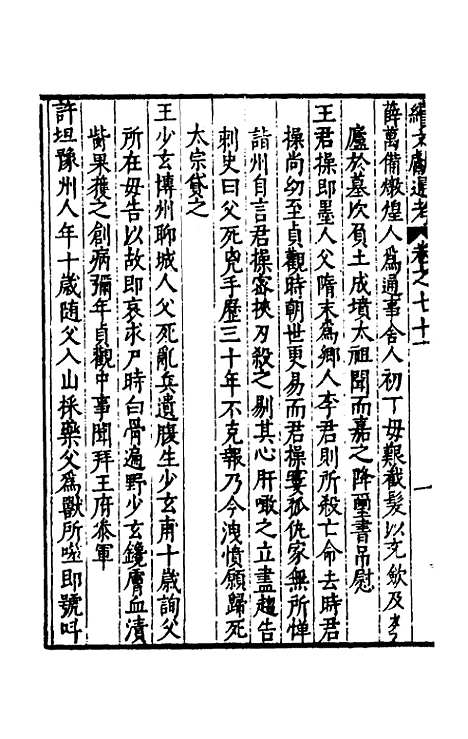 續文獻通考 卷之七十一
薛萬備燉煌人為通事舍人初丁毋艱截髮以充歛及
廬於墓次負土成墳太祖聞而嘉之降璽書吊慰
王君操即墨人父隋末為鄉人李君則所殺亡命去時君
操尚幼至貞觀時朝世更易而君操寠孤仇家無所憚
詣州自言君操密挾刃殺之剔其心肝噉之立盡趨告
刺史曰父死兇手歷三十年不克報乃今洩憤願歸死
太宗貸之
王少玄博州聊城人父死亂兵遺腹生少玄甫十歲詢父
所在毋告以故即哀求尸時白骨遍野少玄鑱膚血漬
胔果獲之創病彌年貞觀中事聞拜王府叅軍
許坦豫州人年十歲隨父入山採藥父為獸所噬即號呌
一